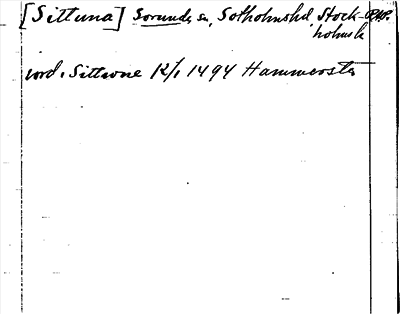 [Sittuna] Sorunda sn, Sotholmshd, Stock-
holmsl.
vid. Sittwne 12/1 1494 Hammersta